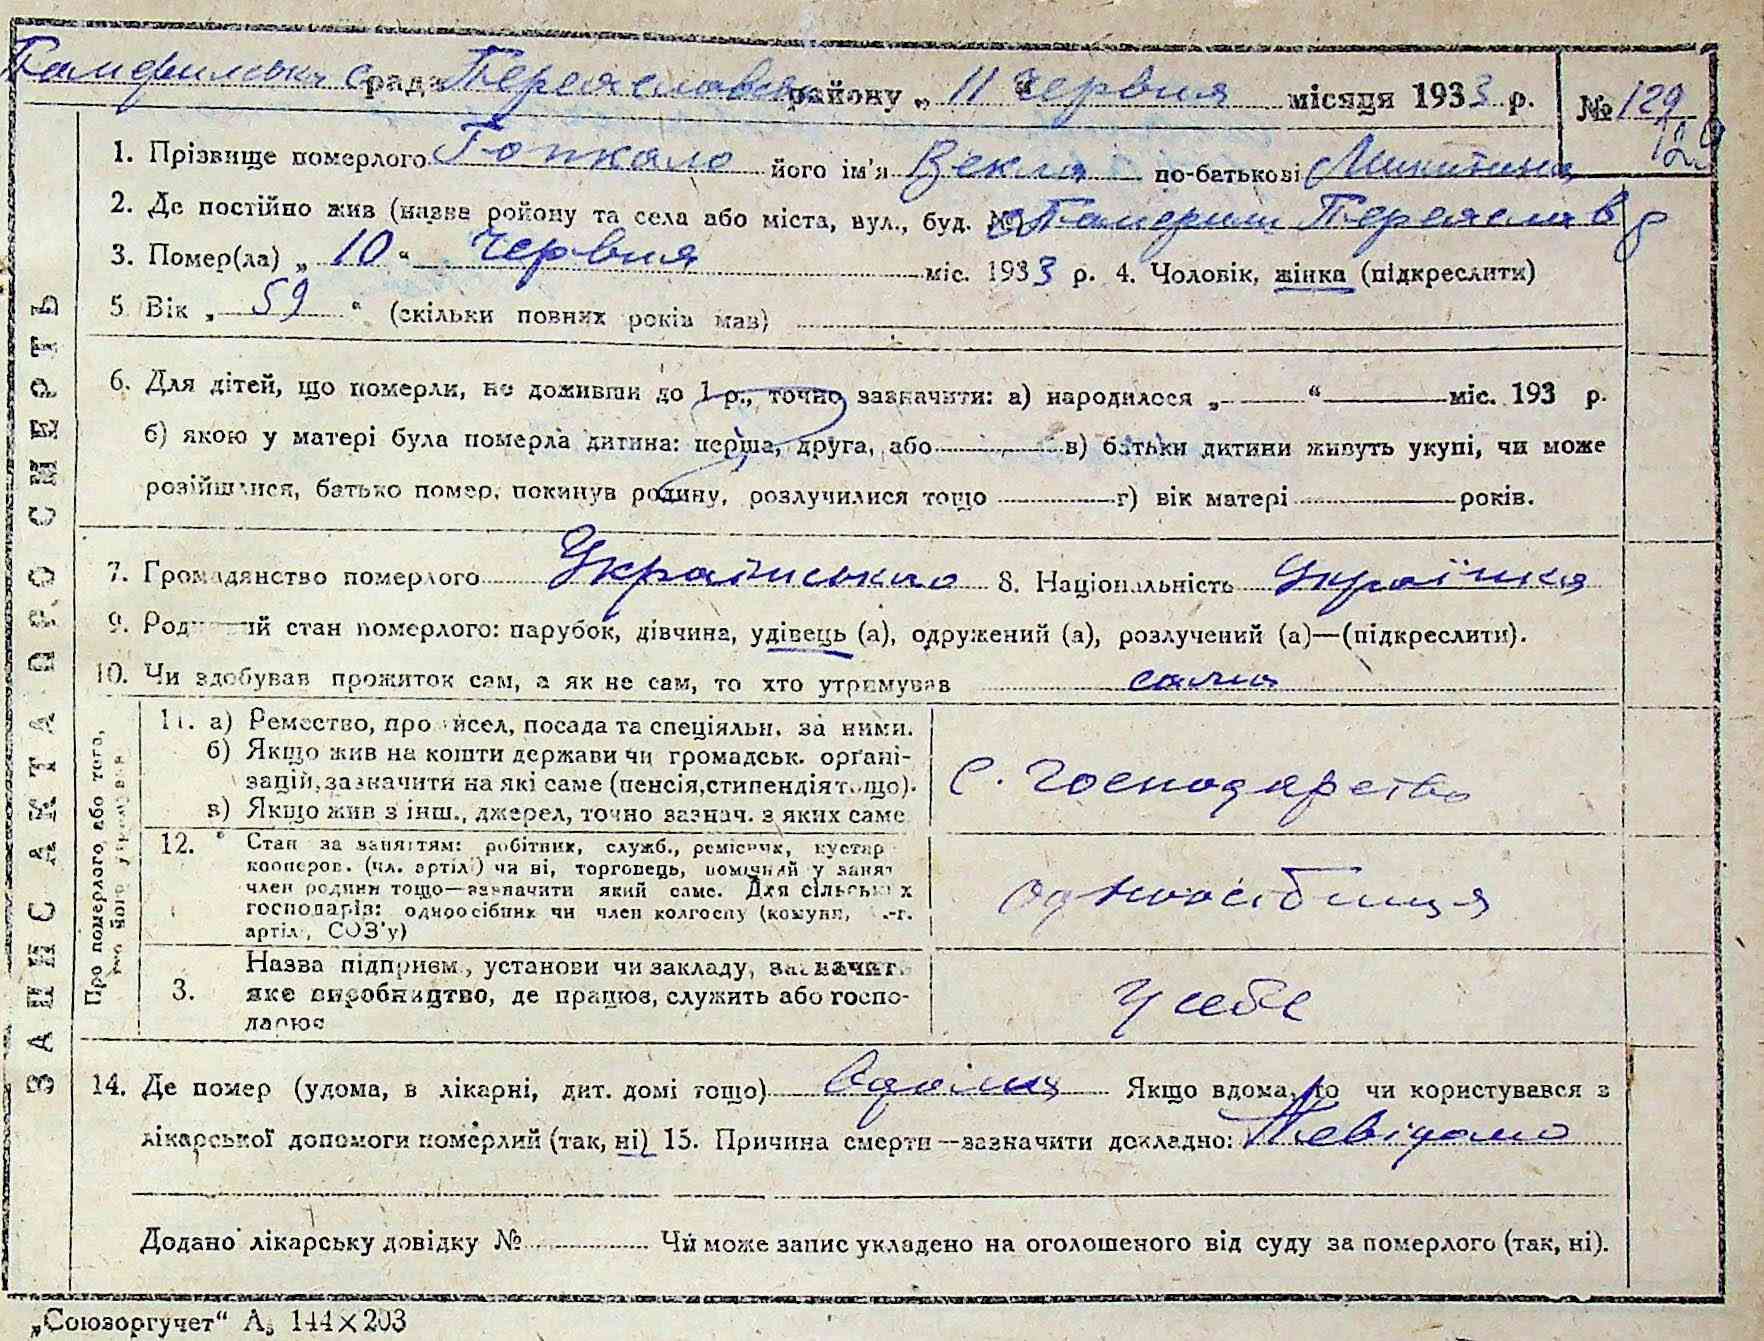 рада Переяславськ району „ 11 " червня місяця 1933 р. № 129
129
1. Прізвище померлого його ім'я Векла по-батькові Микитина
2. Де постійно жив (назва району та села або міста, вул., буд. №) Переяслав
3. Помер(ла) „ 10 " червня міс. 1933 р. 4. Чоловік, жінка (підкреслити)
5. Вік „ 59 " (скільки повних років мав)
6. Для дітей, що померли, не доживши до 1 р., точно зазначити: а) народилося „ " міс. 193 р.
б) якою у матері була померла дитина: перша, друга, або в) батьки дитини живуть укупі, чи може
розійшлися, батько помер, покинув родину, розлучилися тощо г) вік матері років.
7. Громадянство померлого Українського 8. Національність Українка
9. Родинний стан померлого: парубок, дівчина, удівець (а), одружений (а), розлучений (а)—(підкреслити).
10. Чи здобував прожиток сам, а як не сам, то хто утримував сама
11. а) Ремество, промисел, посада та спеціяльн. за ними.
б) Якщо жив на кошти держави чи громадськ. органі-
зацій, зазначити на які саме (пенсія, стипендія тощо).
в) Якщо жив з інш., джерел, точно зазнач. з яких саме
С. господарство
12. Стан за заняттям: робітник, служб., ремісник, кустар
кооперов. (чл. артілі) чи ні, торговець, помічний у занят
член родини тощо—зазначити який саме. Для сільських
господарів: одноосібник чи член колгоспу (комуни, с.-г.
артілі, СОЗ'у)
одноосібниця
3. Назва підприєм., установи чи закладу, зазначить
яке виробництво, де працює, служить або госпо-
дарює
у себе
14. Де помер (удома, в лікарні, дит. домі тощо) Якщо вдома, то чи користувався з
лікарської допомоги померлий (так, ні) 15. Причина смерти—зазначити докладно: Невідомо
Додано лікарську довідку № Чи може запис укладено на оголошеного від суду за померлого (так, ні).
ЗАПИС АКТА ПРО СМЕРТЬ
Про померлого, або того,
хто його утримував
„Союзоргучет" А5 144×203